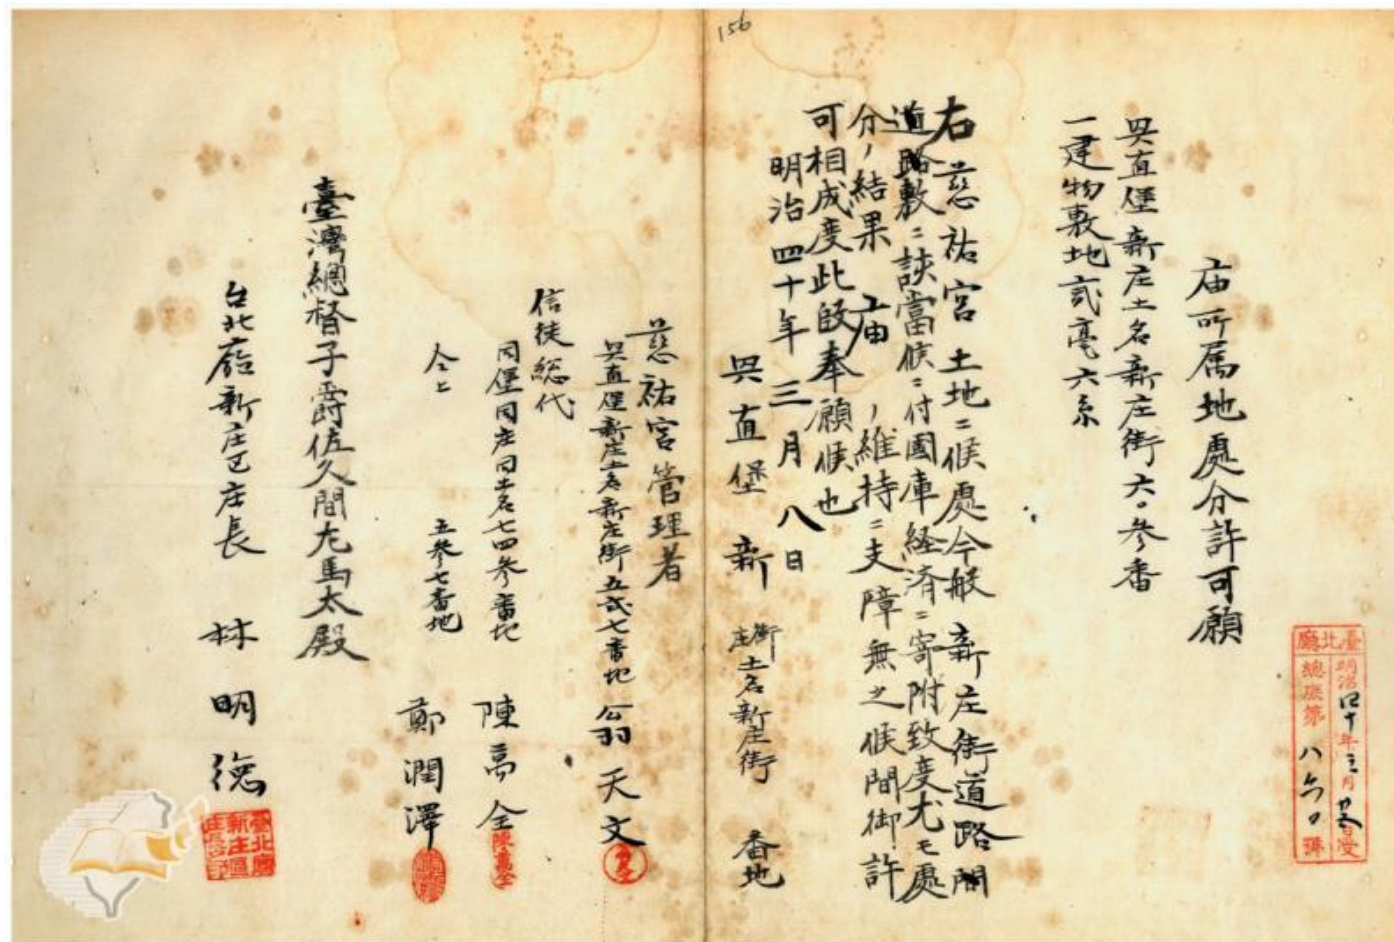 156
庙所属地處分許可願
興直堡新庄土名新庄街六〇参番
一建物敷地貳毫六糸
右慈祐宮土地ニ候處今般新庄街道路開
道路敷ニ該當候ニ付國庫経済ニ寄附致度尤モ處
分ノ結果庙ノ維持ニ支障無之候間御許
可相成度此段奉願候也
明治四十年三月八日
興直堡新庄街土名新庄街番地
慈祐宮管理者
興直堡新庄土名新庄街五貳七番地 翁天文
信徒総代
同堡同庄同土名七四参番地 陳高全
仝上 五参七番地 鄭潤澤
臺灣總督子爵佐久間左馬太殿
台北廳新庄区庄長 林明德
臺北廳
明治四十年三月
總庶第
號